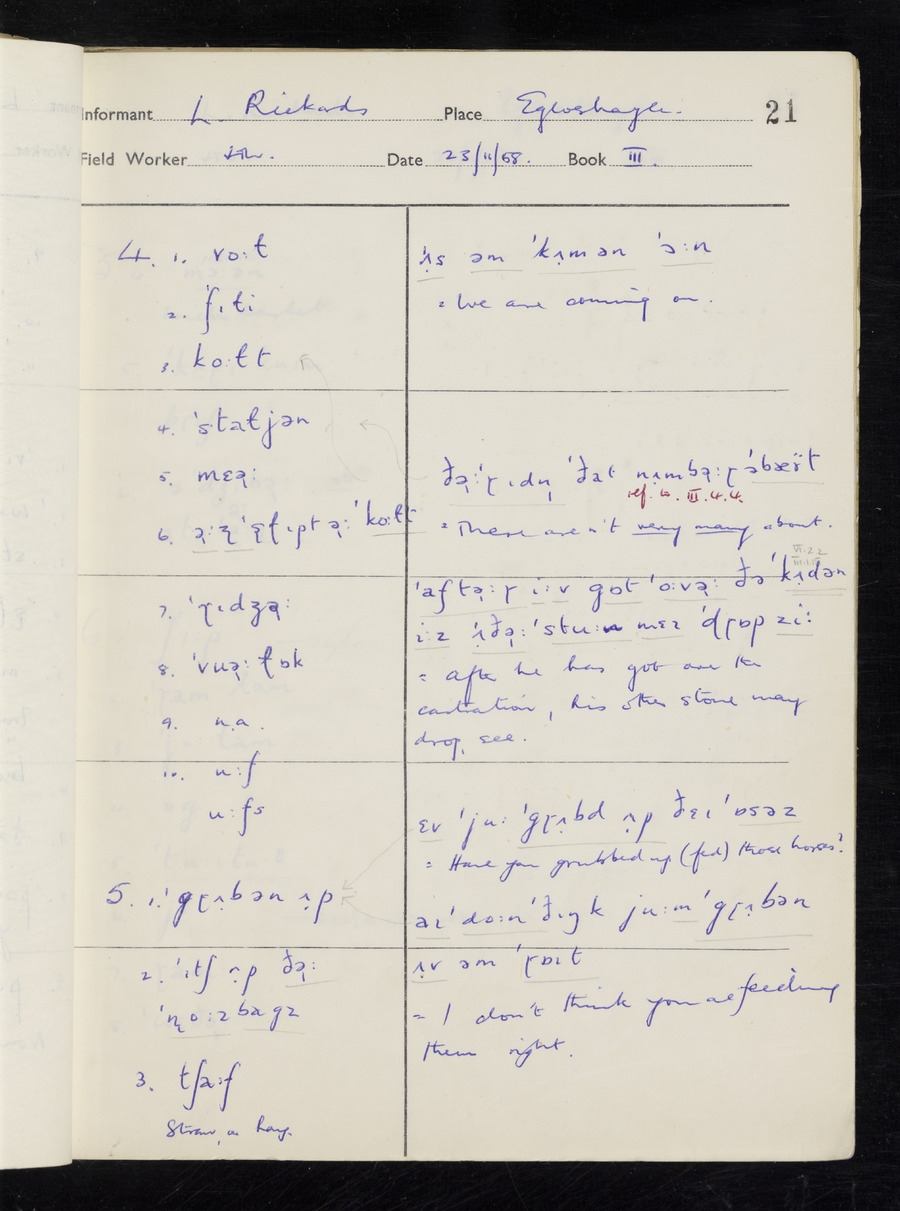 Informant L. Rickards Place Egloshayle. 21
Field Worker Date 23/11/58. Book III.
4. 1. vo:ɫt
2. fɪɫi
3. ko:ɫt
4. 'statjən
5. mɛə̣:
6.
7. 'ɽɪdʒə̣:
8. 'vuə̣:ɫɒk
9. na.
10. u:f
u:fs
5. 1. 'gɽʌ̣bən ʌ̣p
2. 'ɪtʃ ʌ̣p ðə̣:
'ṇo:zbagz
3. tʃa:f
Straw, or hay.
ʌ̣s əm 'kʌ̣mən 'ɔ:n
= We are coming on.
ðə̣:'ɽɪdṇ 'ðat
ref. to III.4.4.
= There aren't very many about.
VI.2.2
'aftə̣:ɽ i:v gɒt 'o:və̣: ðə 'kʌ̣dən
i:z ʌ̣ðə̣: 'stu:n mɛɪ 'dɽɒp zi:
= after he has got over the
castration, his other stone may
drop, see.
ɛv 'ju: 'gɽʌ̣bd ʌ̣p ðɛɪ 'ɒsəz
= Have you grubbed up (fed) those horses?
aɪ 'do:n' ðɪŋk ju:m 'gɽʌ̣bən
ʌ̣v əm 'ɽɒɪt
= I don't think you are feeding
them right.